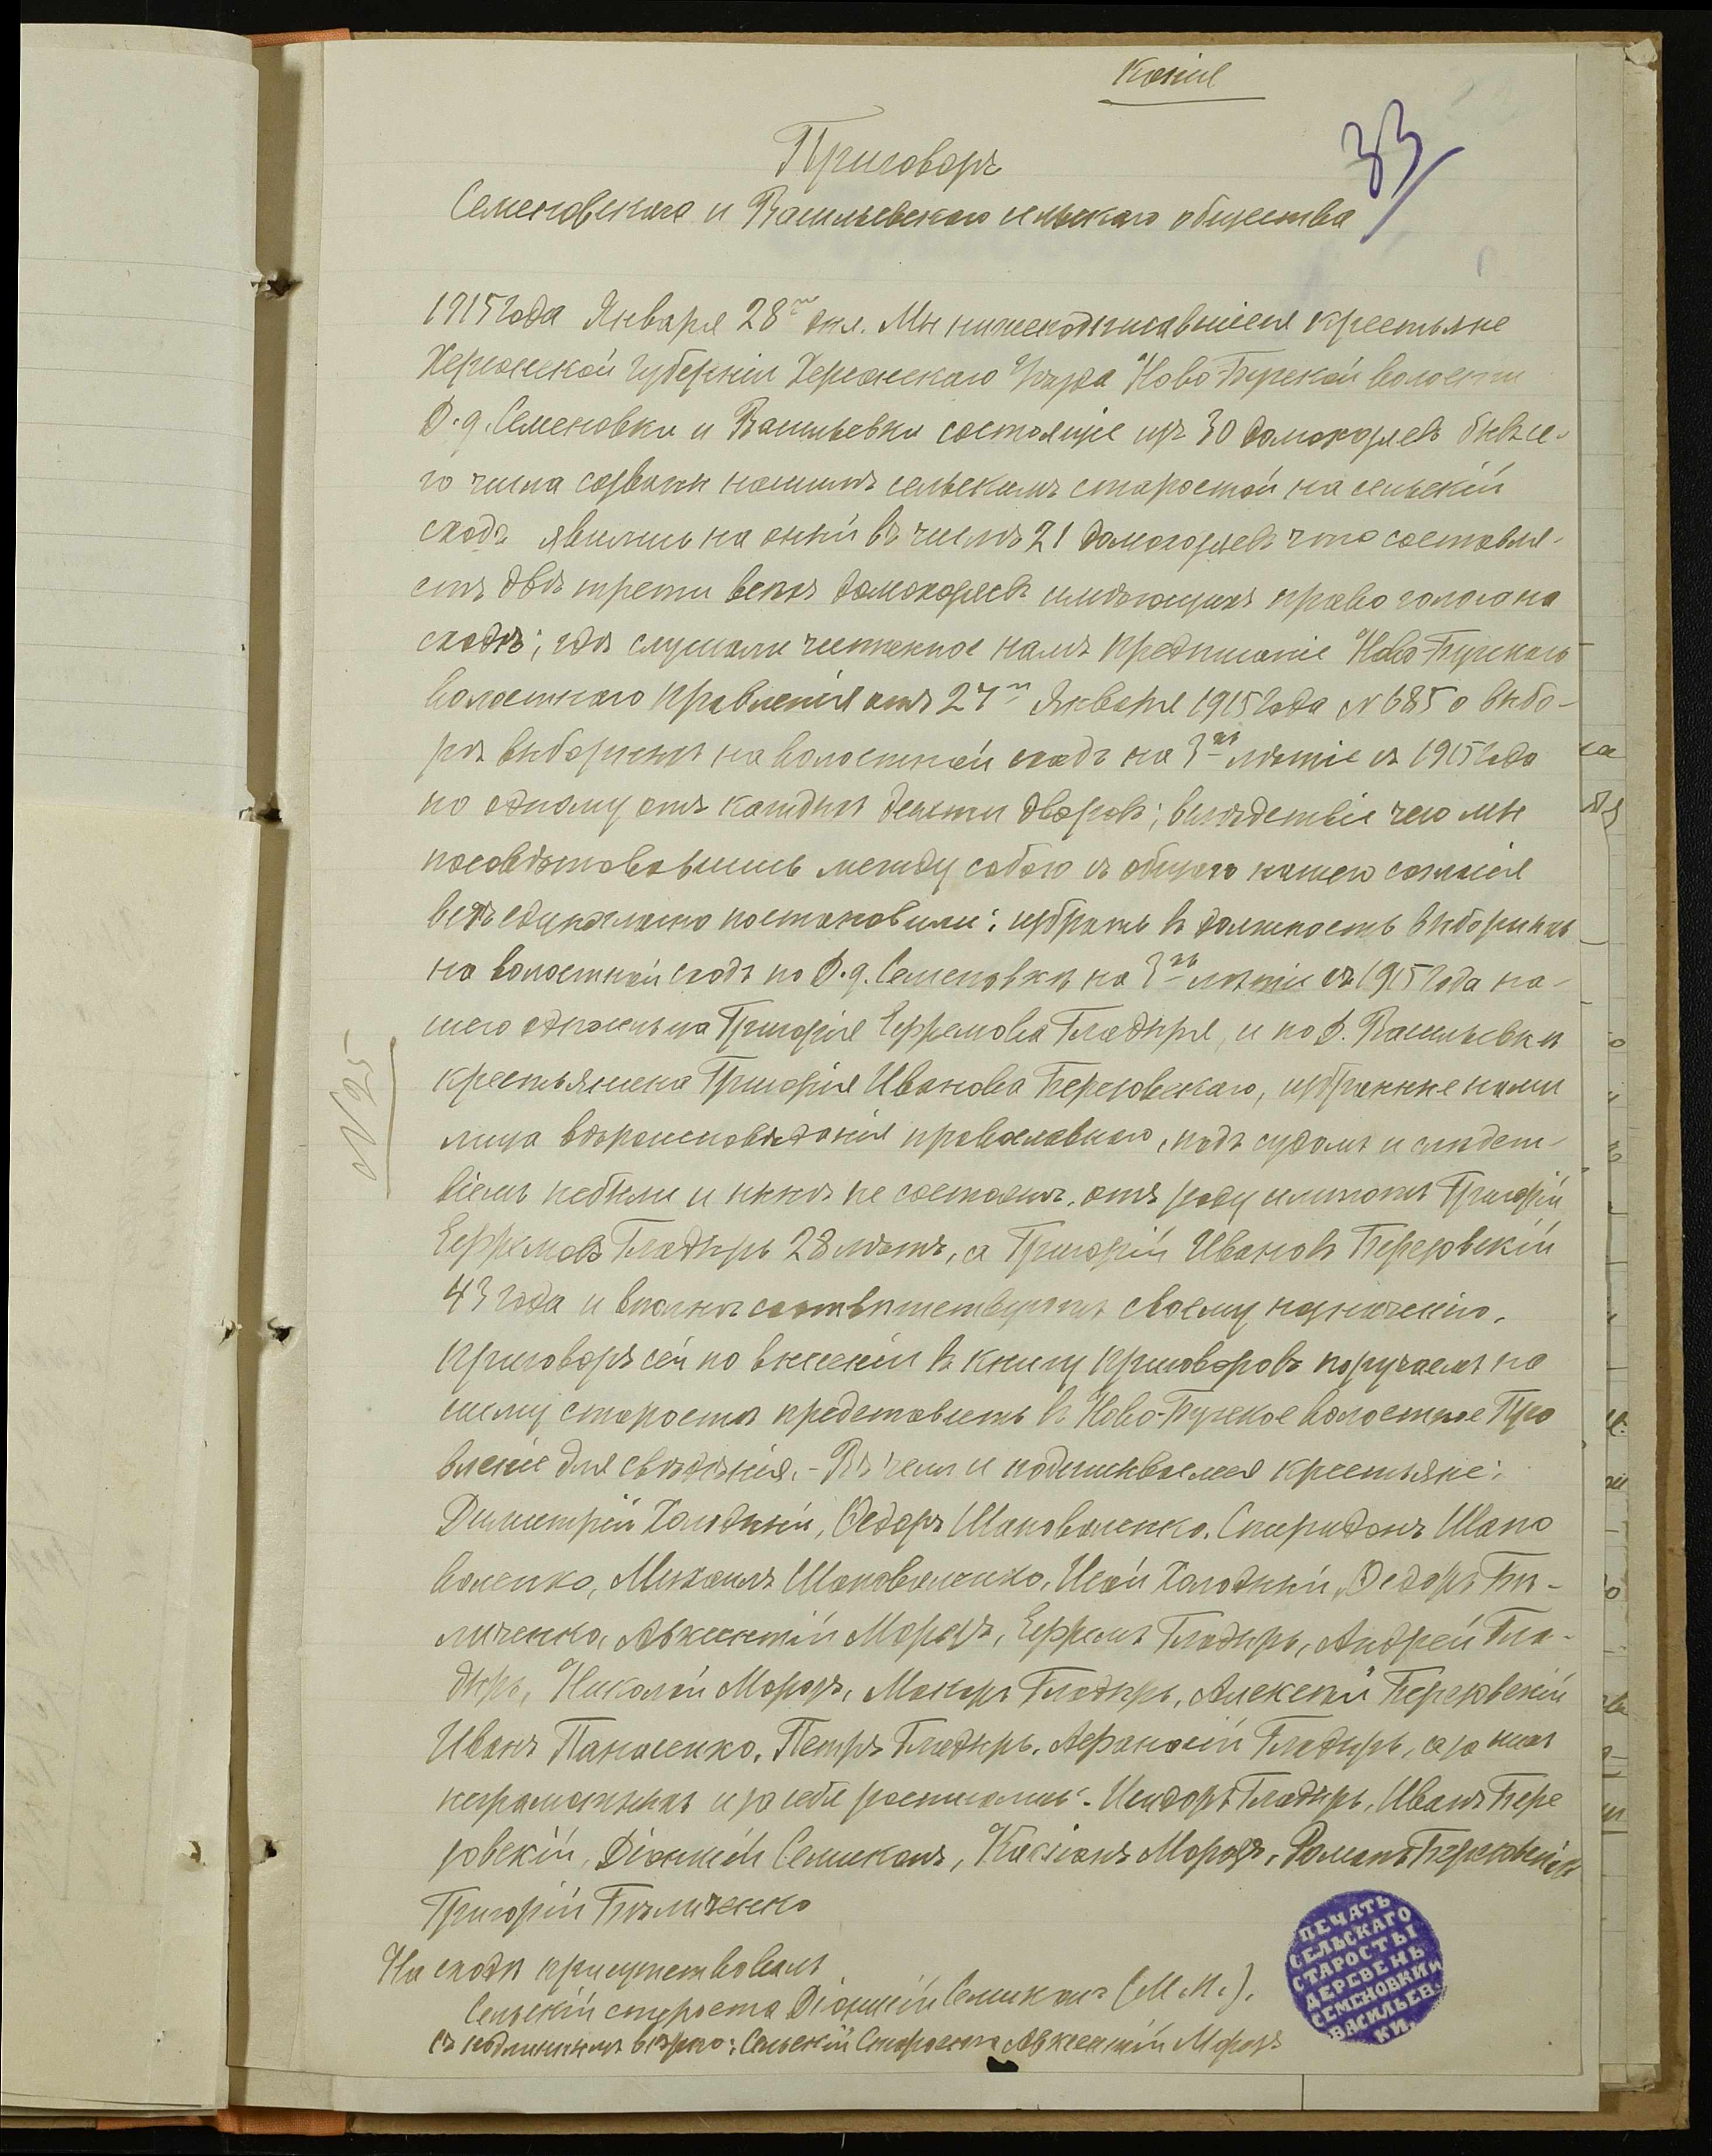 Копія
33
Приговоръ
Семеновскаго и Васильевскаго сельскаго общества
1915 года Января 28го дня. Мы нижеподписавшіеся крестьяне
Херсонской Губерніи Херсонскаго Уѣзда Ново-Бугской волости
Д.д. Семеновки и Васильевки состоящіе изъ 30 домохозяевъ бывъ се-
го числа созваны нашимъ сельскимъ старостой на сельскій
сходъ явились на оный въ числѣ 21 домохозяевъ что составля-
етъ двѣ трети всехъ домохозяевъ имѣющихъ право голоса на
сходѣ; гдѣ слушали читанное намъ предписаніе Ново-Бугскаго
волостного правленія отъ 27го Января 1915 года № 685 о выбо-
рѣ выборныхъ на волостной сходъ на 3хъ лѣтіе съ 1915 года
по одному отъ каждыхъ десяти дворовъ; вслѣдствіе чего мы
посовѣтовавшись между собою съ общаго нашего согласія
всѣ единогласно постановили: избрать въ должность выборныхъ
на волостной сходъ по Д.д. Семеновкѣ на 3хъ лѣтіе съ 1915 года на-
шего односельца Григорія Ефремова Гладыря, и по Д. Васильевкѣ
крестьянина Григорія Иванова Березовскаго, избранные нами
лица вѣроисповѣданія православнаго, подъ судомъ и слѣдст-
віемъ небыли и нынѣ не состоятъ, отъ роду имѣютъ Григорій
Ефремовъ Гладырь 28 лѣтъ, а Григорій Ивановъ Березовскій
43 года и вполнѣ соотвѣтствуютъ своему назначенію.
Приговоръ сей по внесеніи въ книгу приговоровъ поручаемъ на
шему старостѣ представить въ Ново-Бугское волостное Пра
вленіе для свѣдѣнія. - Въ чемъ и подписываемся крестьяне:
Димитрій Холодный, Федоръ Шаповаленко, Спиридонъ Шапо
валенко, Михаилъ Шаповаленко, Исай Холодный, Федоръ Бѣ-
личенко, Авксентій Морозъ, Ефремъ Гладырь, Андрей Гла-
дырь, Николай Морозъ, Макаръ Гладырь, Алексѣй Березовскій
Иванъ Панасенко, Петръ Гладырь, Афанасій Гладырь, а за нихъ
неграмотныхъ и за себя росписались: Исидоръ Гладырь, Иванъ Бере
зовскій, Діонисій Семикозъ, Касіанъ Морозъ, Романъ Березовскій
Григорій Бѣличенко
На сходѣ присутствовалъ
Сельскій староста Діонисій Семикозъ (М.П.).
Съ подлиннымъ вѣрно: Сельскій Староста Авксентій Морозъ
№ 25
ПЕЧАТЬ
СЕЛЬСКАГО
СТАРОСТЫ
ДЕРЕВЕНЬ
СЕМЕНОВКИ и
ВАСИЛЬЕВ-
КИ.